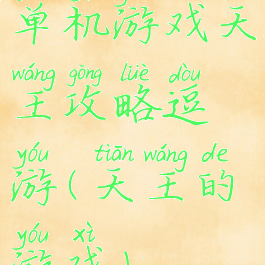 单机游戏天
wáng gòng lüè dòu
王攻略逗
yóu tiān wáng de
游(天王的
yóu xì
游戏)